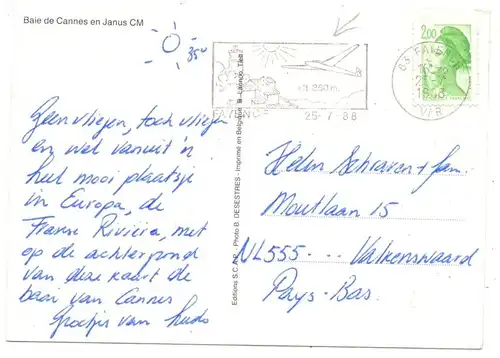 Baie de Cannes en Janus CM
35°
2,00
alt. 850 m.
FAYENCE
25-7-88
83 FAYENCE
VAR
Geen vliegen, toch vliegen
en wel vanuit 'n
heel mooi plaatsje
in Europa, de
Franse Rivièra, met
op de achtergrond
van deze kaart de
baai van Cannes
Groetjes van
Helen Schraven + fam.
Moutlaan 15
NL555 - - - Valkenswaard
Pays-Bas
Editions S.C.A.P. - Photo B. DESESTRES - Imprimé en Belgique